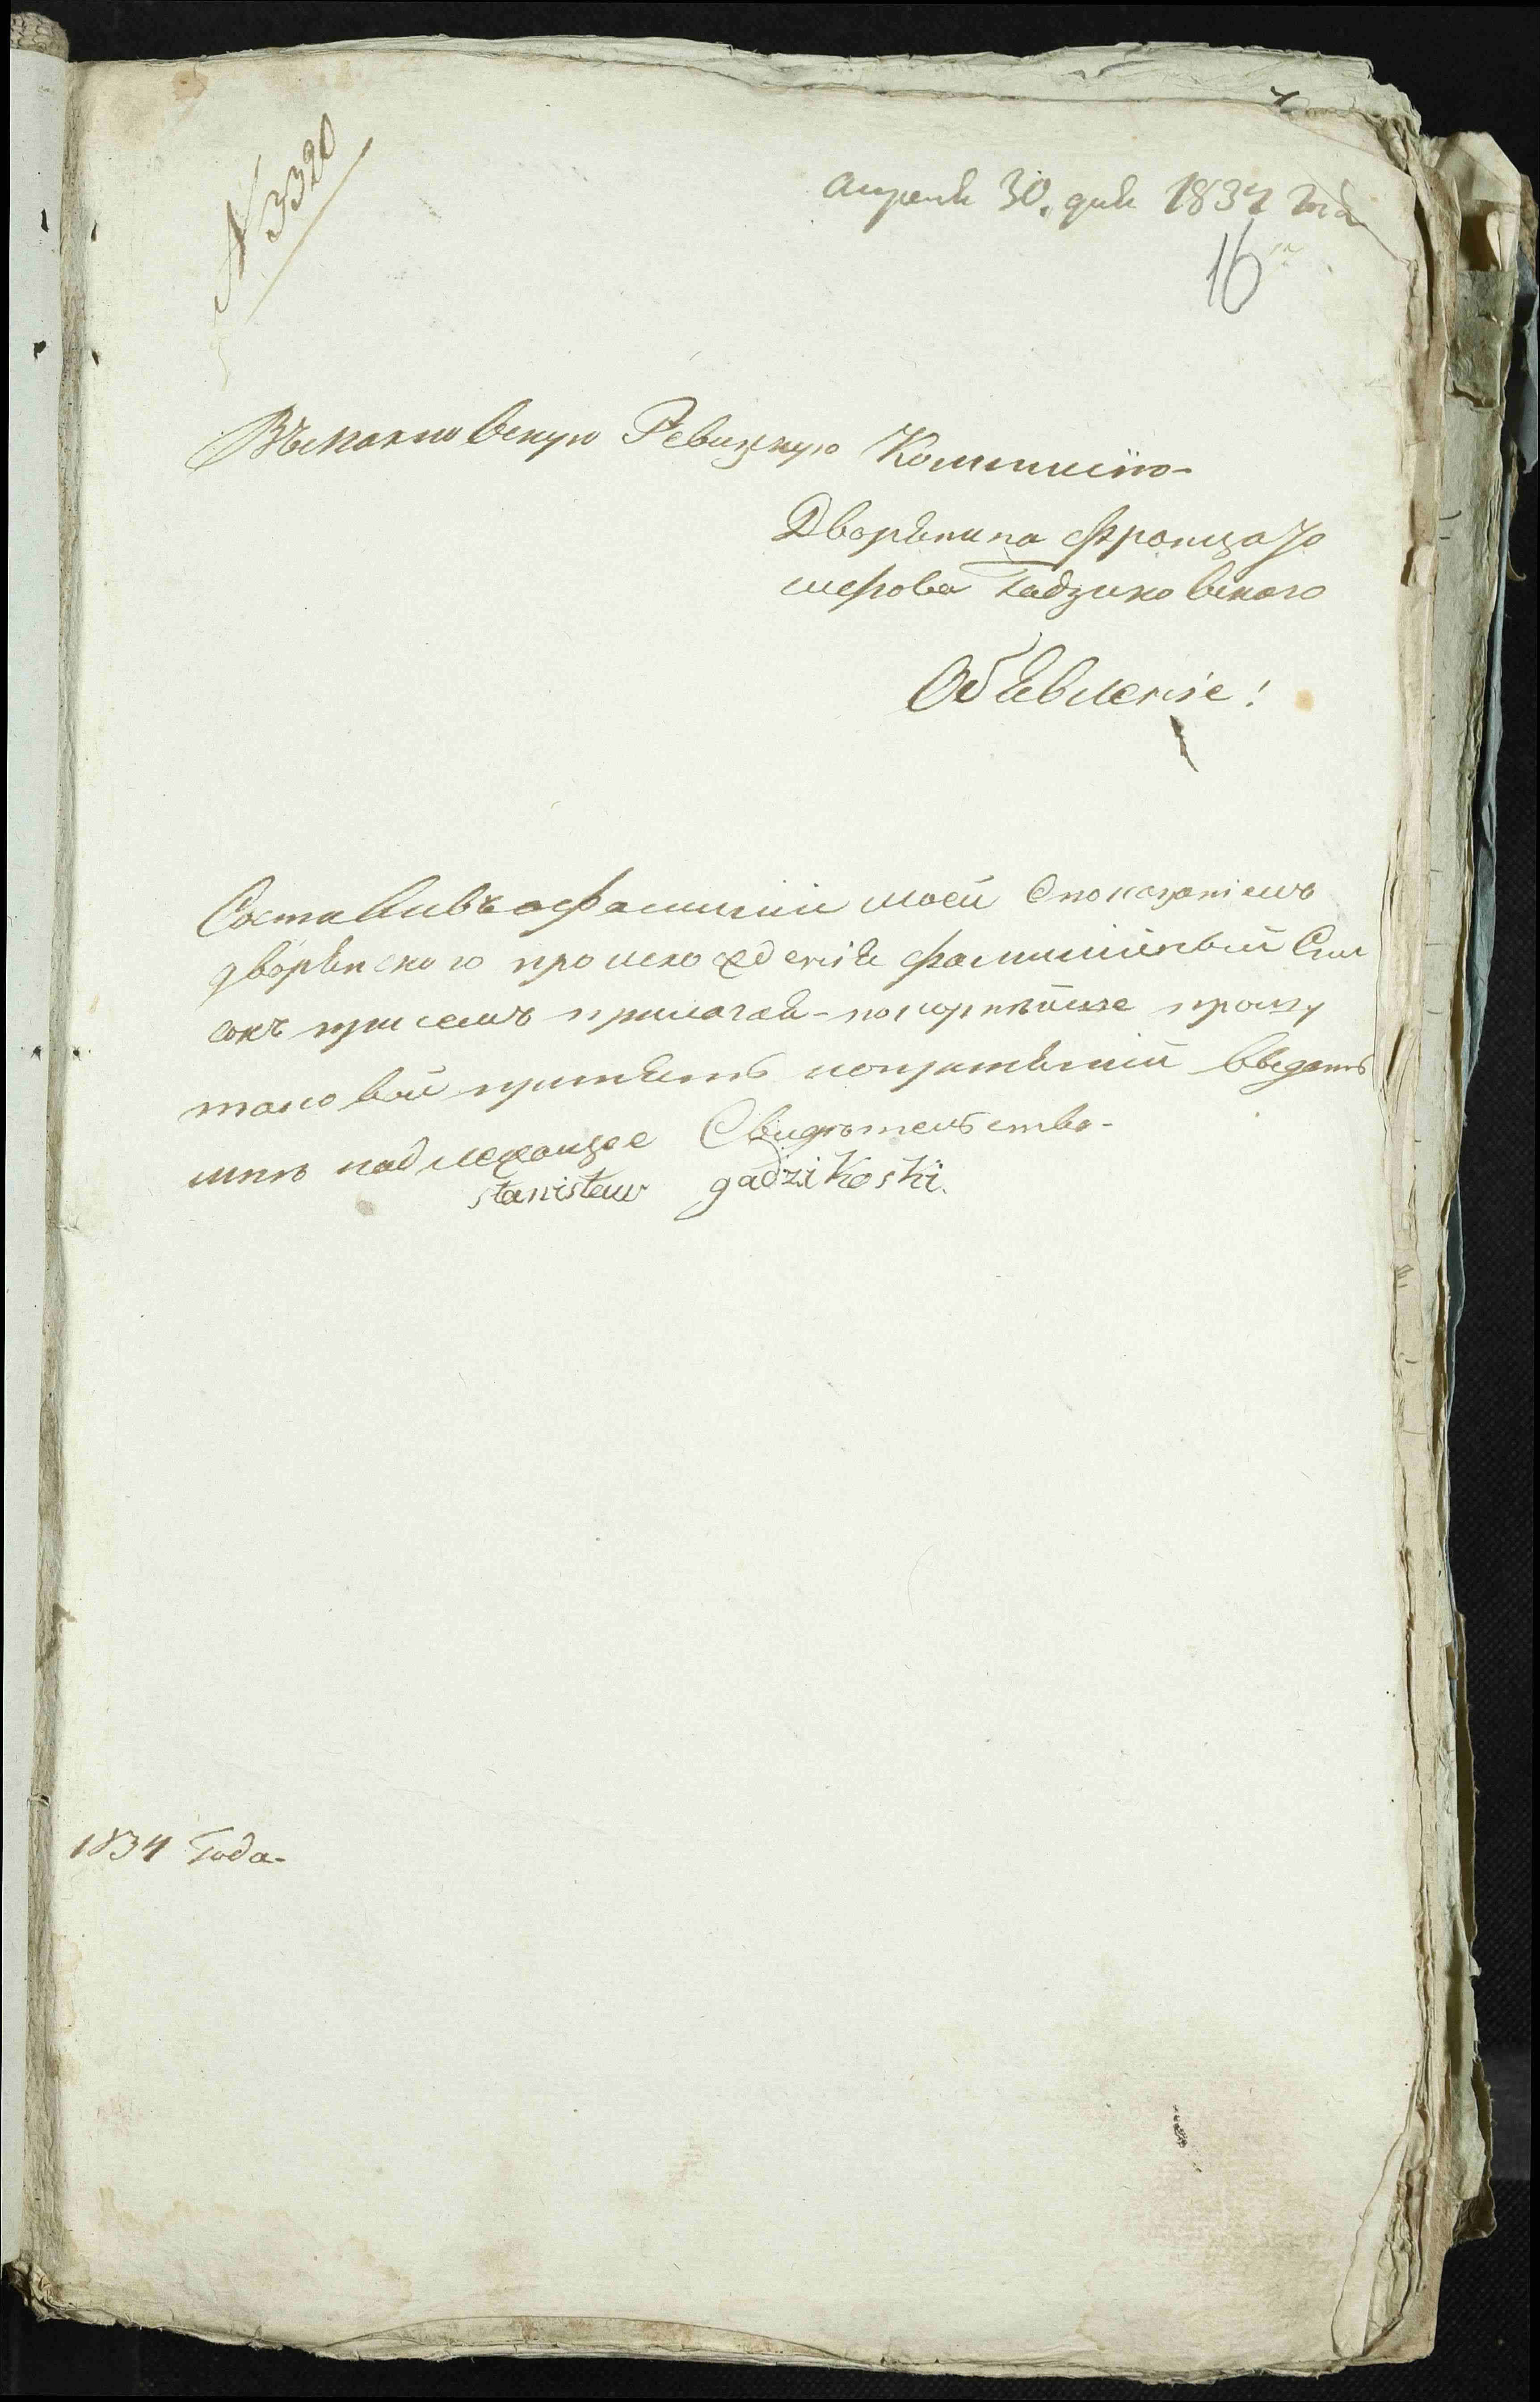 N 3320
апреля 30. дня 1834 года
16
Въ Махновскую Ревизкую Коммисию-
Дворянина Франца Io
сифова Гадзиковского
Объявленiе!
Составивъ о фамилiи моей с показанiемъ
дворянского происхожденiя фамилiйный Спи
сокъ при семъ прилагая - покорнѣйше прошу
таковой принять и о принятiи выдать
мнѣ надлежащое Свидѣтельство-
stanisław gadzikoski.
1834 Года-